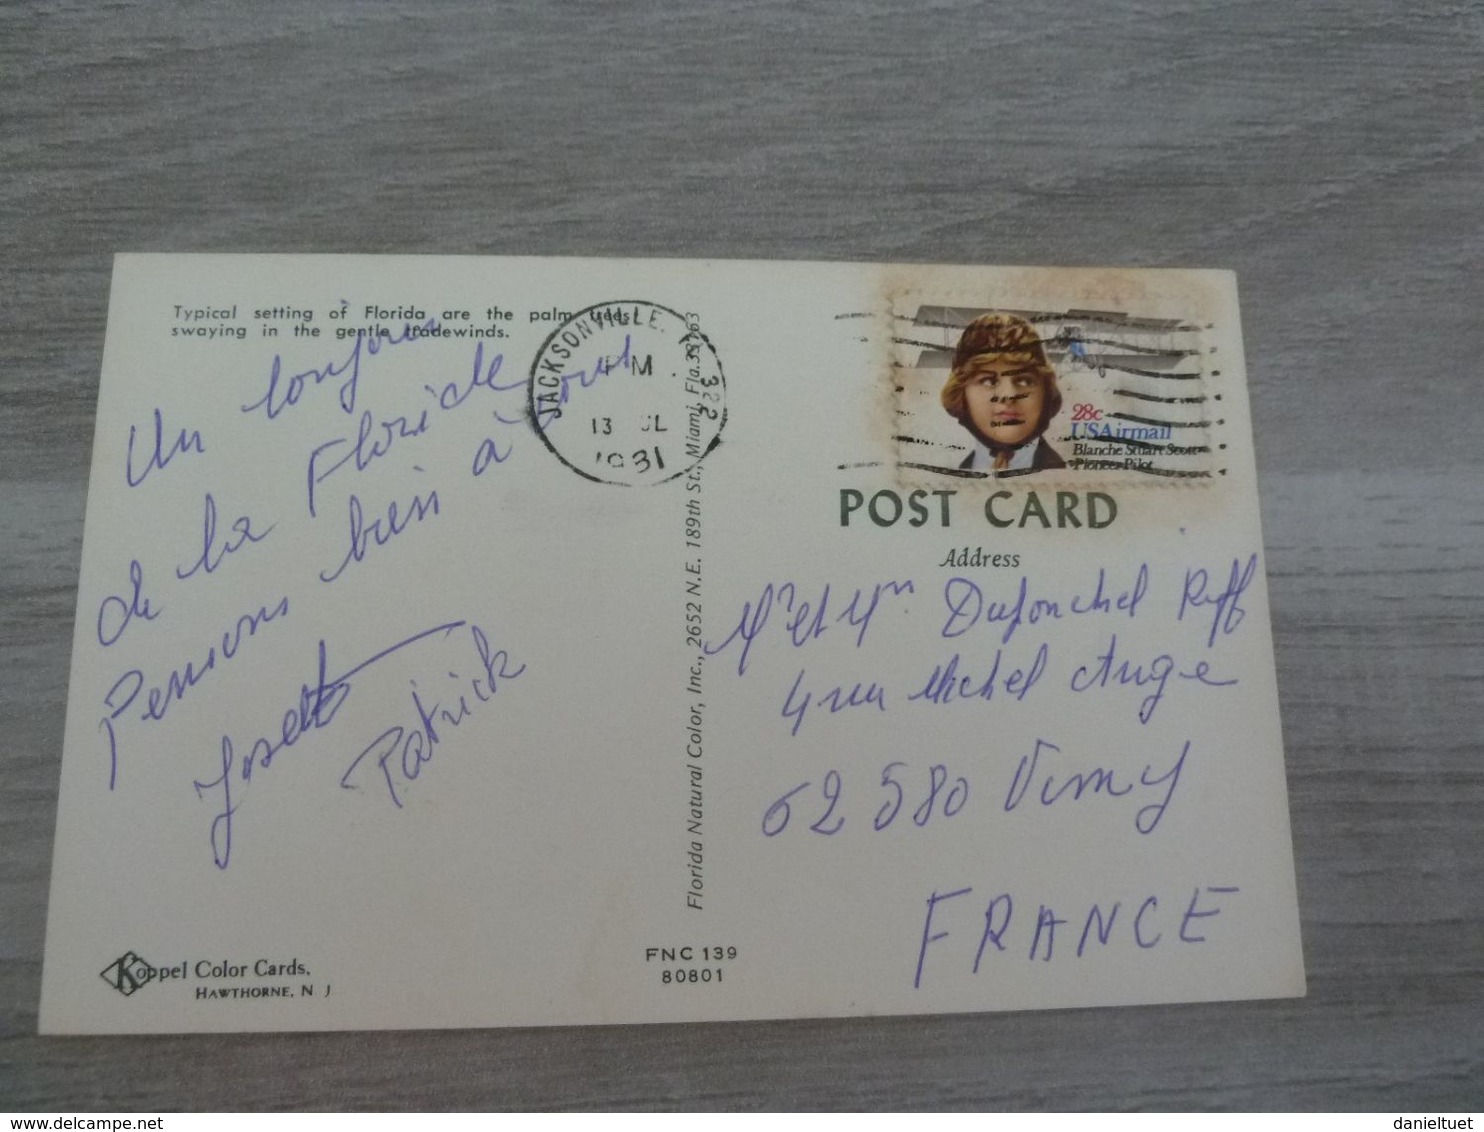 Typical setting of Florida are the palm trees
swaying in the gentle tradewinds.
Un bonjour
de la Floride
Pensons bien à vous
Josette
Patrick
Koppel Color Cards,
HAWTHORNE, N J
Florida Natural Color, Inc., 2652 N.E. 189th St., Miami, Fla. 33163
FNC 139
80801
JACKSONVILLE, FL 322
PM
13 JUL
1981
28c
USAirmail
Blanche Stuart Scott
Pioneer Pilot
POST CARD
Address
Mr et Mm Duponchel
4 rue Michel Ange
62 580 Vimy
FRANCE
danieltuet